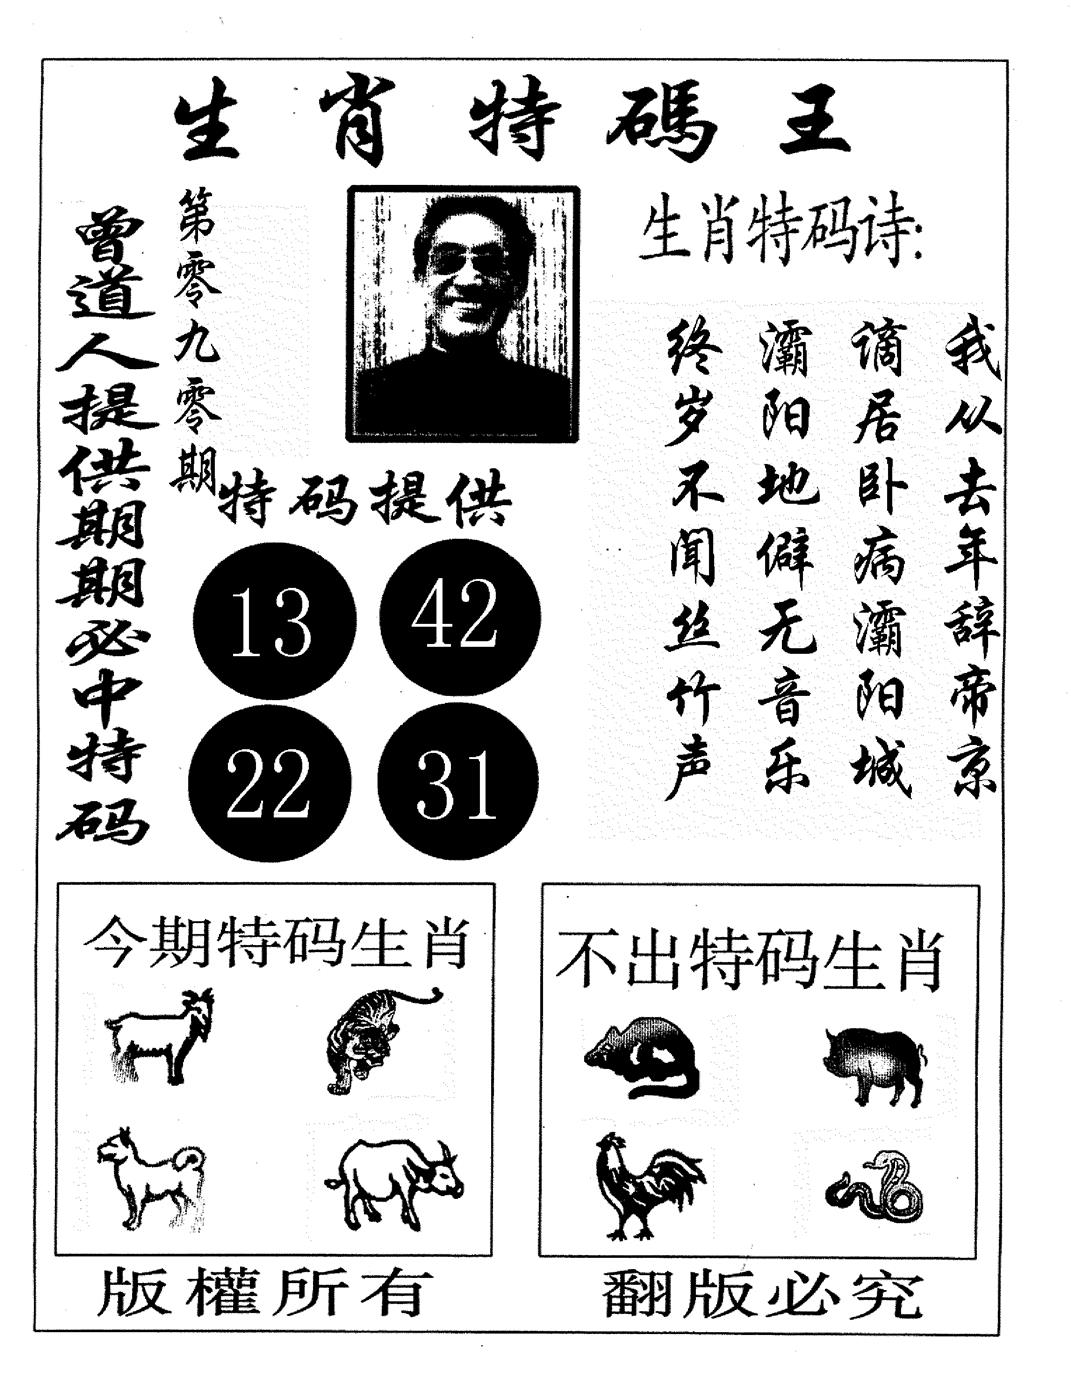 生肖特碼王
曾道人提供期期必中特码
第零九零期
生肖特码诗:
我从去年辞帝京
谪居卧病灞阳城
灞阳地僻无音乐
终岁不闻丝竹声
特码提供
13 42
22 31
今期特码生肖
不出特码生肖
版權所有
翻版必究